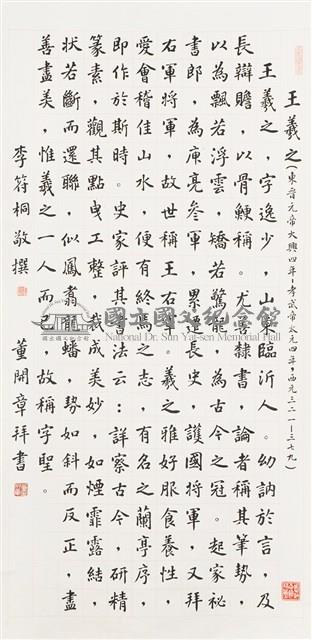 王羲之(東晉元帝大興四年-孝武帝太元四年,西元三二一-三七九)
王羲之,字逸少,山東臨沂人。幼訥於言,及
長辯贍,以骨鯁稱。尤善隸書,論者稱其筆勢,
以為飄若浮雲,矯若驚龍,為古今之冠。起家祕
書郎,為庾亮參軍,累遷長史,護國將軍,又拜
右軍將軍,故世稱王右軍。羲之雅好服食養性,
愛會稽佳山水,便有終焉之志,有名之蘭亭序,
即作於斯時。史家評其書法云:詳察古今,研精
篆素,觀其點曳工整,裁成美妙,如煙霏露結,
狀若斷而還聯,似鳳翥龍蟠,勢如斜而反正,盡
善盡美,惟羲之一人而已,故稱字聖。
李符桐敬撰 董開章拜書
國立國父紀念館
National Dr. Sun Yat-sen Memorial Hall